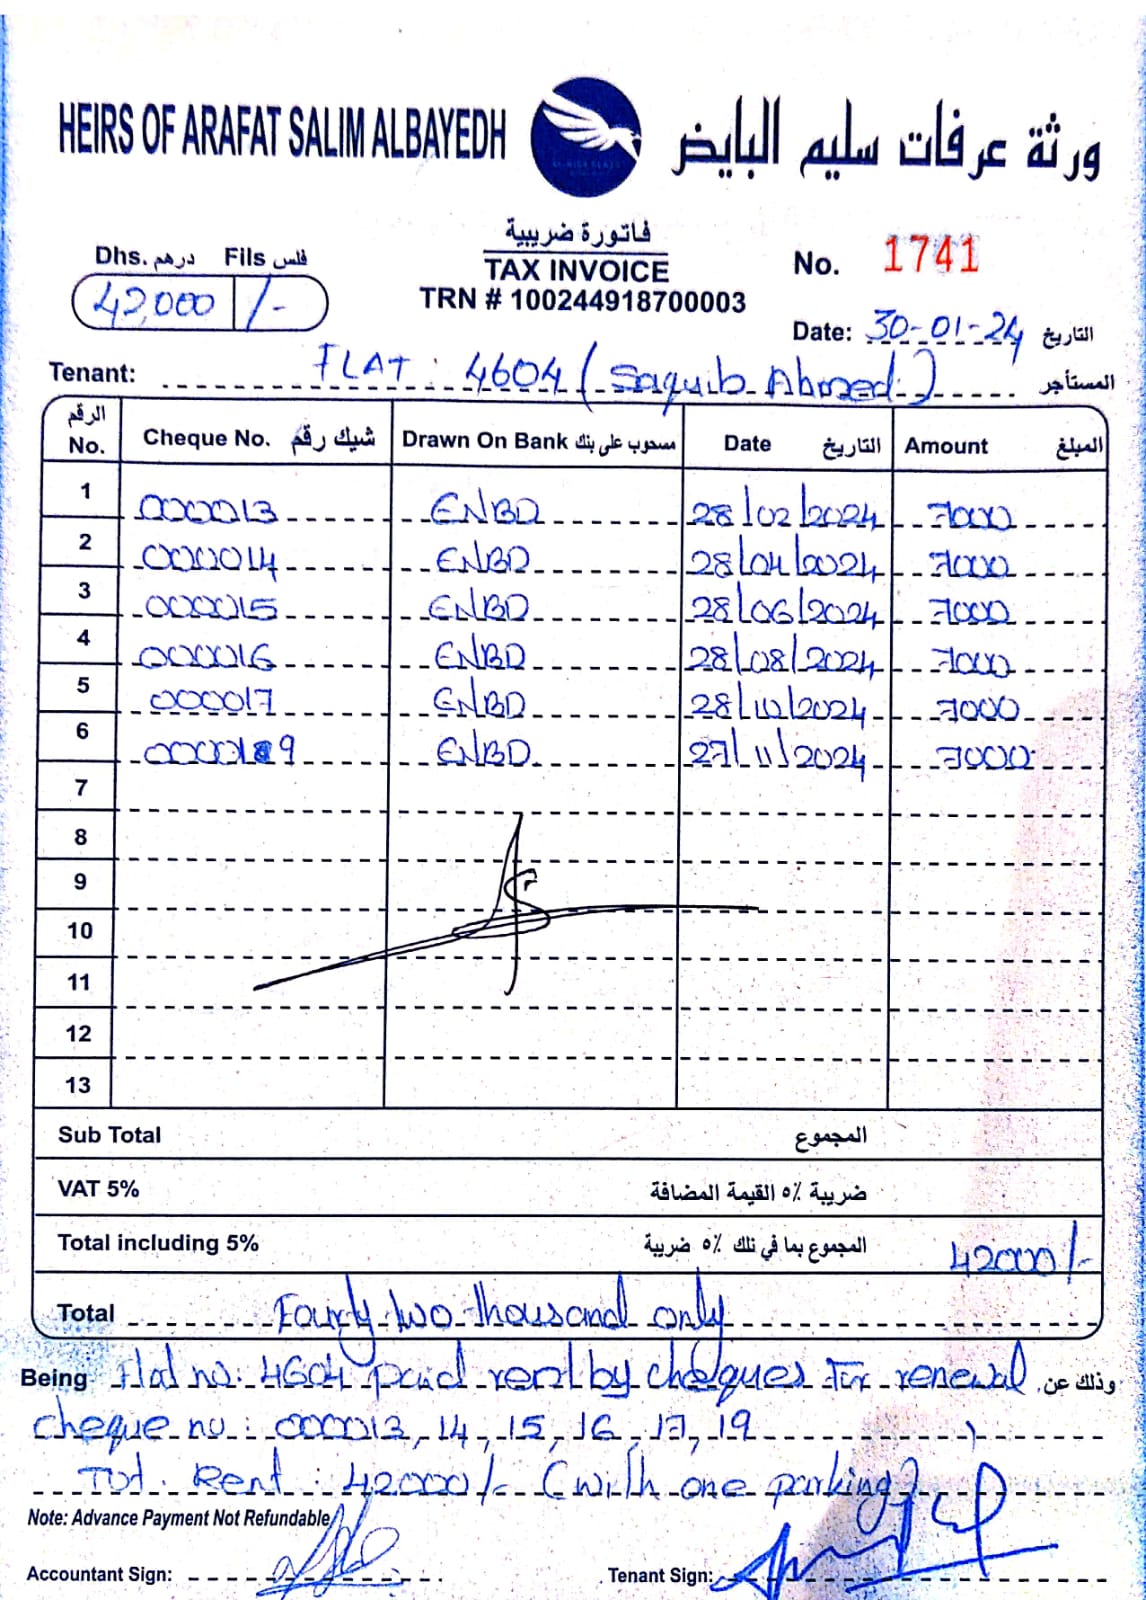 HEIRS OF ARAFAT SALIM ALBAYEDH ورثة عرفات سليم البايض
فاتورة ضريبية
TAX INVOICE
TRN # 100244918700003
Dhs. درهم Fils فلس
42,000 /-
No. 1741
Date: 30-01-24 التاريخ
Tenant: FLAT : 4604 (Saquib Ahmed) المستأجر
الرقم No. Cheque No. شيك رقم Drawn On Bank مسحوب على بنك Date التاريخ Amount المبلغ
1 000013 ENBD 28/02/2024 7000
2 000014 ENBD 28/04/2024 7000
3 000015 ENBD 28/06/2024 7000
4 000016 ENBD 28/08/2024 7000
5 000017 ENBD 28/10/2024 7000
6 0000189 ENBD 27/11/2024 7000
7
8
9
10
11
12
13
Sub Total المجموع
VAT 5% ضريبة ٥٪ القيمة المضافة
Total including 5% المجموع بما في تلك ٥٪ ضريبة 42000/-
Total Fourty two thousand only
Being Flat no: 4604 paid rent by cheques For renewal وذلك عن
cheque no : 000013, 14, 15, 16, 17, 19
Tot. Rent : 42000/- (with one parking)
Note: Advance Payment Not Refundable
Accountant Sign: Tenant Sign: